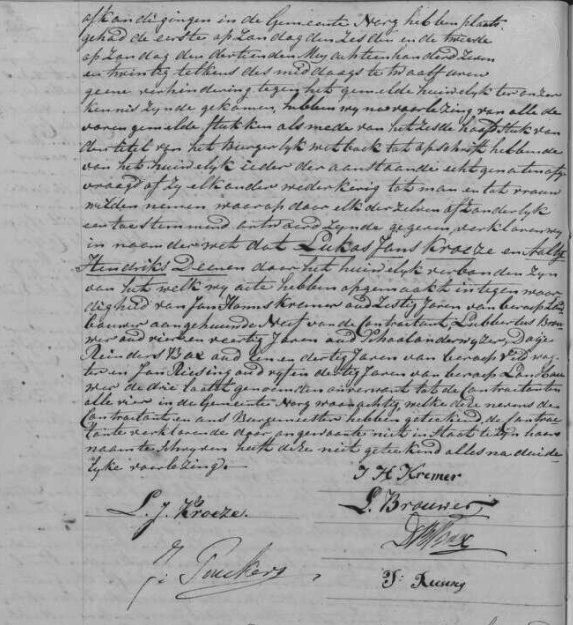 afkondigingen in de Gemeente Norg hebben plaats
gehad de eerste op Zondag den Zesden en de tweede
op Zondag den dertienden Mey achttienhonderd Zeven
en twintig telkens des middags te twaalf uren
geene verhindering tegen het gemelde huwelijk ter onzer
kennis zynde gekomen, hebben wy na voorlezing van alle de
voren gemelde stukken als mede van het zesde hoofdstuk van
den titel van het Burgerlyk wetboek tot opschrift hebbende
van het huwelijk ieder der aanstaande echtgenoten afge
vraagd of zy elkander wederkerig tot man en tot vrouw
wilden nemen waarop door elk derzelven afzonderlyk
een toestemmend antwoord zynde gegeven, verklaren wy
in naam der wet dat Lukas Jans Kroeze en Aaltje
Hendriks Deenen door het huwelijk verbonden zyn
van het welk wy acte hebben opgemaakt in tegenwoor
digheid van Jan Harms Kremer oud Zestig Jaren van beroep Land
bouwer aangehuwde Neef van de Contractant, Lubbertus Brou
wer oud vier en veertig Jaren oud Schoolonderwyzer,
Reinders Bax oud een en dertig Jaren van beroep Veldwag
ter en Jan oud vyf en dertig Jaren van beroep Landbou
wer de drie laatst genoemden onverwant tot de Contractanten
alle vier in de Gemeente Norg woonachtig, welke deze nevens de
Contractant en ons Burgemeester hebben geteekend, de Contrac
tante verklarende door ongewoonte niet in staat te zyn haar
naam te schryven heeft deze niet geteekend alles na duide
lyke voorlezing.
J H Kremer
L. J. Kroeze.
L. Brouwer